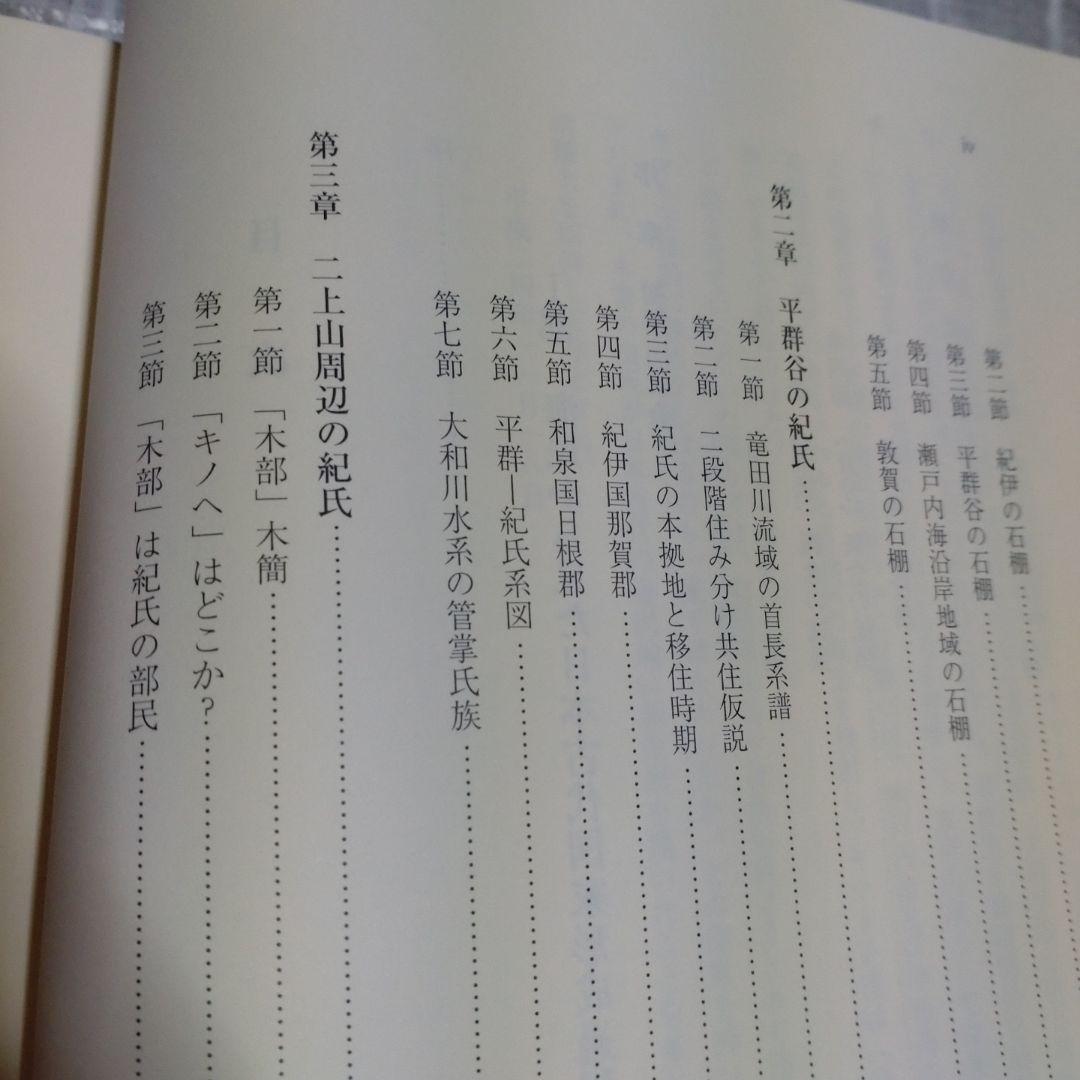 第二節 紀伊の石棚
第三節 平群谷の石棚
第四節 瀬戸内海沿岸地域の石棚
第五節 敦賀の石棚
第二章 平群谷の紀氏
第一節 竜田川流域の首長系譜
第二節 二段階住み分け共住仮説
第三節 紀氏の本拠地と移住時期
第四節 紀伊国那賀郡
第五節 和泉国日根郡
第六節 平群―紀氏系図
第七節 大和川水系の管掌氏族
第三章 二上山周辺の紀氏
第一節 「木部」木簡
第二節 「キノヘ」はどこか?
第三節 「木部」は紀氏の部民